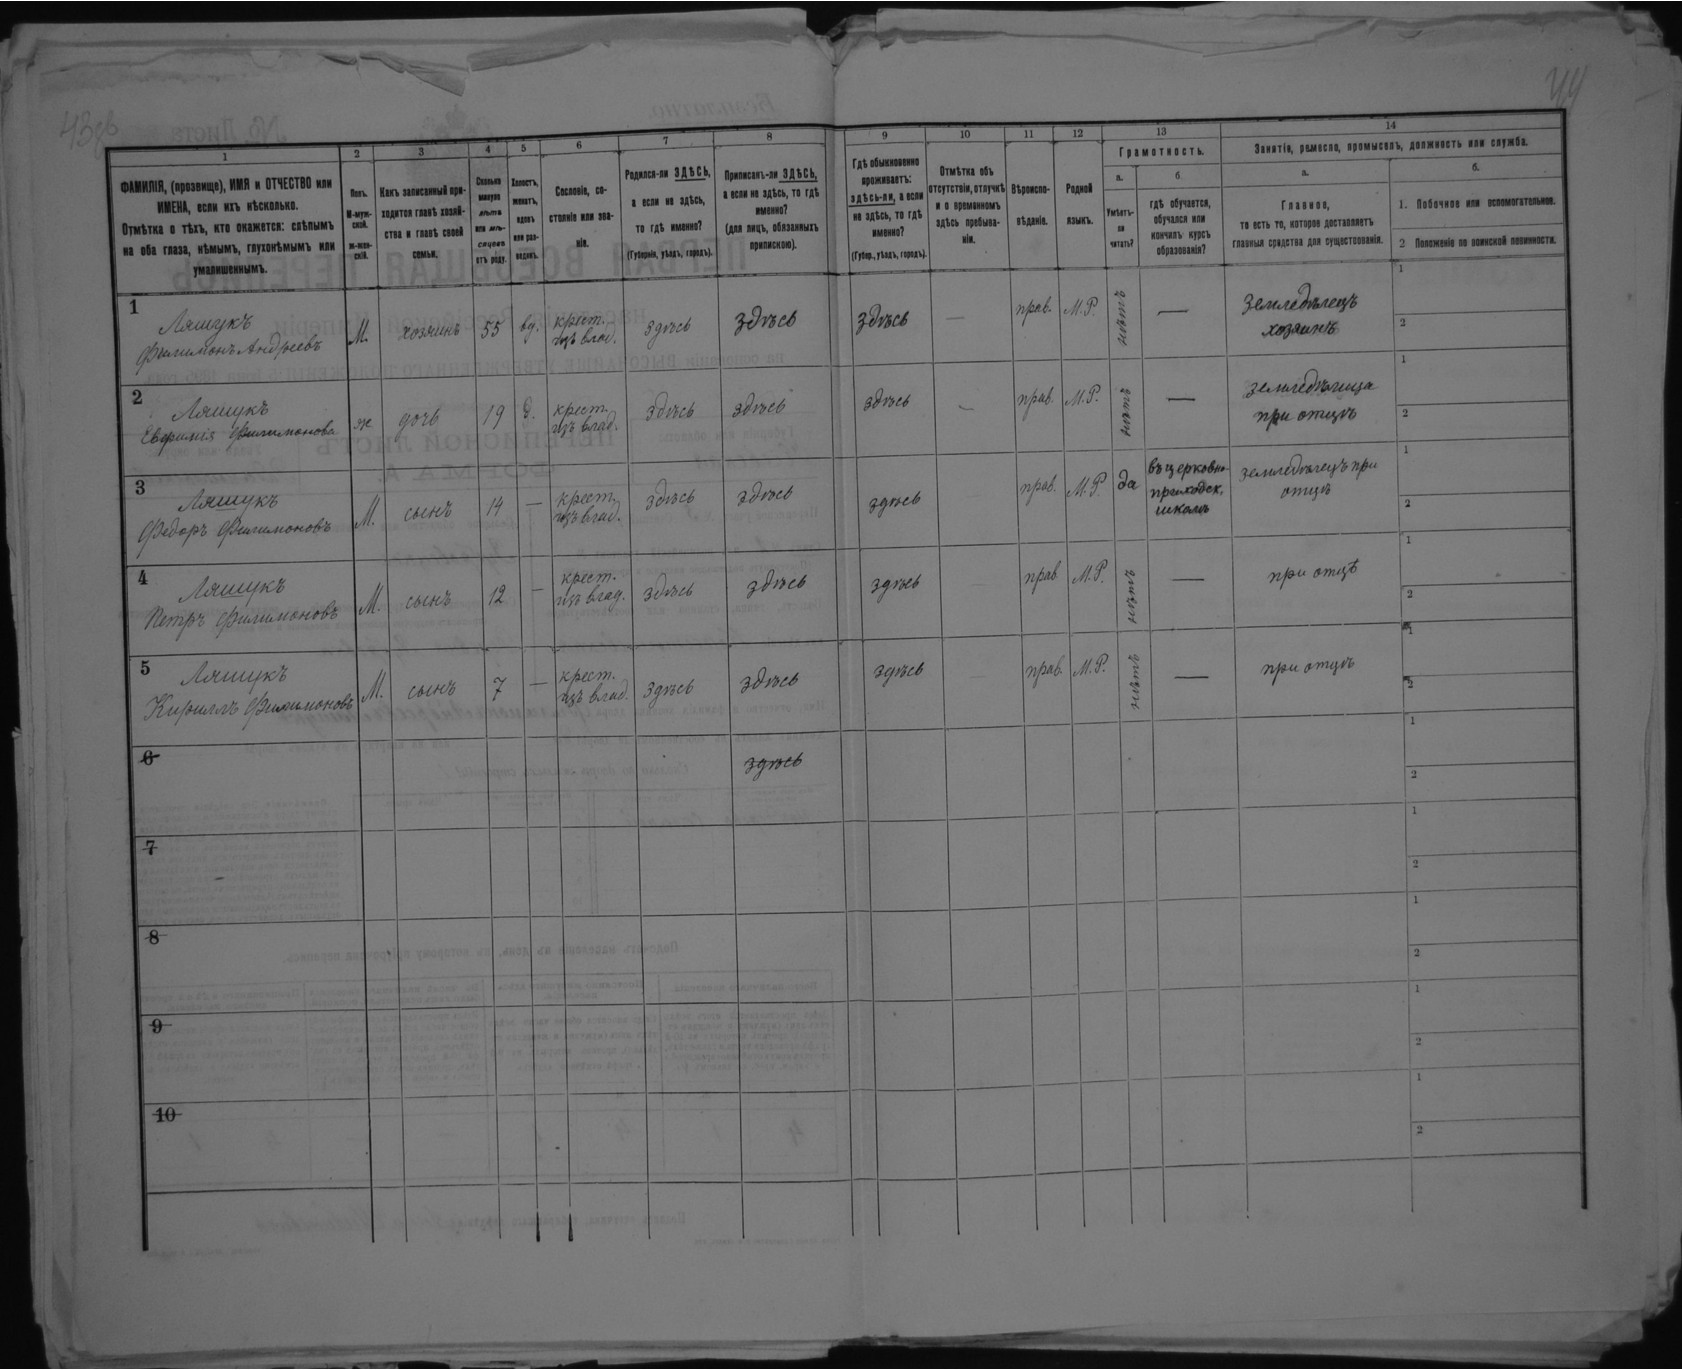 43об
44
1
2
3
4
5
6
7
8
9
10
11
12
13
14
ФАМИЛІЯ, (прозвище), ИМЯ и ОТЧЕСТВО или
ИМЕНА, если ихъ нѣсколько.
Отмѣтка о тѣхъ, кто окажется: слѣпымъ
на оба глаза, нѣмымъ, глухонѣмымъ или
умалишеннымъ.
Полъ.
М-муж-
ской.
ж-жен-
скій.
Какъ записанный при-
ходится главѣ хозяй-
ства и главѣ своей
семьи.
Сколько
минуло
лѣтъ
или мѣ-
сяцевъ
отъ роду.
Холостъ,
женатъ,
вдовъ
или раз-
веденъ.
Сословіе, со-
стояніе или зва-
ніе.
Родился-ли ЗДѢСЬ,
а если не здѣсь,
то гдѣ именно?
(Губернія, уѣздъ, городъ).
Приписанъ-ли ЗДѢСЬ,
а если не здѣсь, то гдѣ
именно?
(для лицъ, обязанныхъ
припискою).
Гдѣ обыкновенно
проживаетъ:
здѣсь-ли, а если
не здѣсь, то гдѣ
именно?
(Губер., уѣздъ, городъ).
Отмѣтка объ
отсутствіи, отлучкѣ
и о временномъ
здѣсь пребыва-
ніи.
Вѣроиспо-
вѣданіе.
Родной
языкъ.
Грамотность.
а.
Умѣетъ-
ли
читать?
б.
гдѣ обучается,
обучался или
кончилъ курсъ
образованія?
Занятіе, ремесло, промыселъ, должность или служба.
а.
Главное,
то есть то, которое доставляетъ
главныя средства для существованія.
б.
1. Побочное или вспомогательное.
2 Положеніе по воинской повинности.
1
Ляшукъ
Филимонъ Андреевъ
М.
хозяинъ
55
вд.
крест.
изъ влад.
здѣсь
здѣсь
здѣсь
—
прав.
М.Р.
нѣтъ
—
земледѣлецъ
хозяинъ
1
2
2
Ляшукъ
Евфимія Филимонова
ж
дочь
19
д.
крест.
изъ влад.
здѣсь
здѣсь
здѣсь
—
прав.
М.Р.
нѣтъ
—
земледѣлица
при отцѣ
1
2
3
Ляшукъ
Федоръ Филимоновъ
М.
сынъ
14
—
крест.
изъ влад.
здѣсь
здѣсь
здѣсь
прав.
М.Р.
да
въ церковно-
приходск.
школѣ
земледѣлецъ при
отцѣ
1
2
4
Ляшукъ
Петръ Филимоновъ
М.
сынъ
12
—
крест.
изъ влад.
здѣсь
здѣсь
здѣсь
прав.
М.Р.
нѣтъ
—
при отцѣ
1
2
5
Ляшукъ
Кириллъ Филимоновъ
М.
сынъ
7
—
крест.
изъ влад.
здѣсь
здѣсь
здѣсь
прав.
М.Р.
нѣтъ
—
при отцѣ
1
2
6
здѣсь
1
2
7
1
2
8
1
2
9
1
2
10
1
2